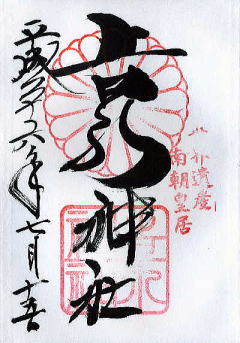 世界遺産
南朝皇居
吉水神社
平成二十六年七月十五日
吉水
神社